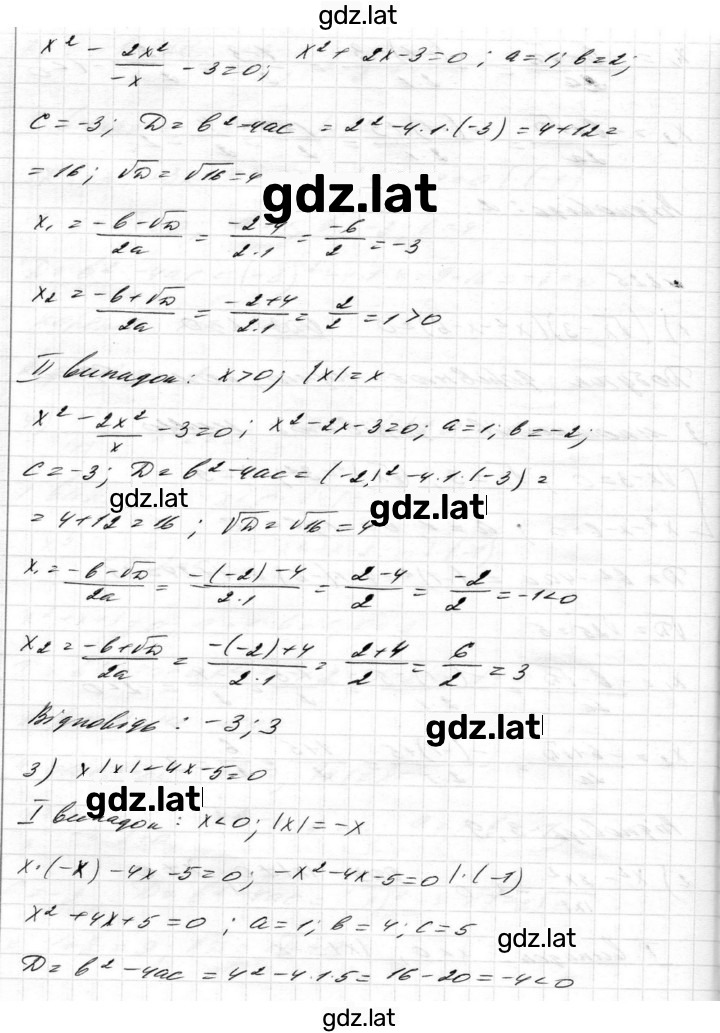 gdz.lat
x² - 2x²/-x - 3=0; x² + 2x-3=0; a=1; b=2;
c=-3; D= b²-4ac = 2²-4·1·(-3) = 4+12=
=16; √D=√16=4
gdz.lat
x₁ = -b-√D/2a = -2-4/2·1 = -6/2 = -3
x₂ = -b+√D/2a = -2+4/2·1 = 2/2 = 1>0
II випадок: x>0; |x|=x
x² - 2x²/x - 3=0; x²-2x-3=0; a=1; b=-2;
c=-3; D= b²-4ac = (-2)²-4·1·(-3) =
gdz.lat
gdz.lat
= 4+12=16; √D=√16=4
x₁ = -b-√D/2a = -(-2)-4/2·1 = 2-4/2 = -2/2 = -1<0
x₂ = -b+√D/2a = -(-2)+4/2·1 = 2+4/2 = 6/2 = 3
Відповідь: -3; 3
gdz.lat
3) x|x|-4x-5=0
gdz.lat
I випадок: x<0; |x|=-x
x·(-x)-4x-5=0; -x²-4x-5=0 |·(-1)
x²+4x+5=0; a=1; b=4; c=5
gdz.lat
D= b²-4ac = 4²-4·1·5 = 16-20 = -4<0
gdz.lat